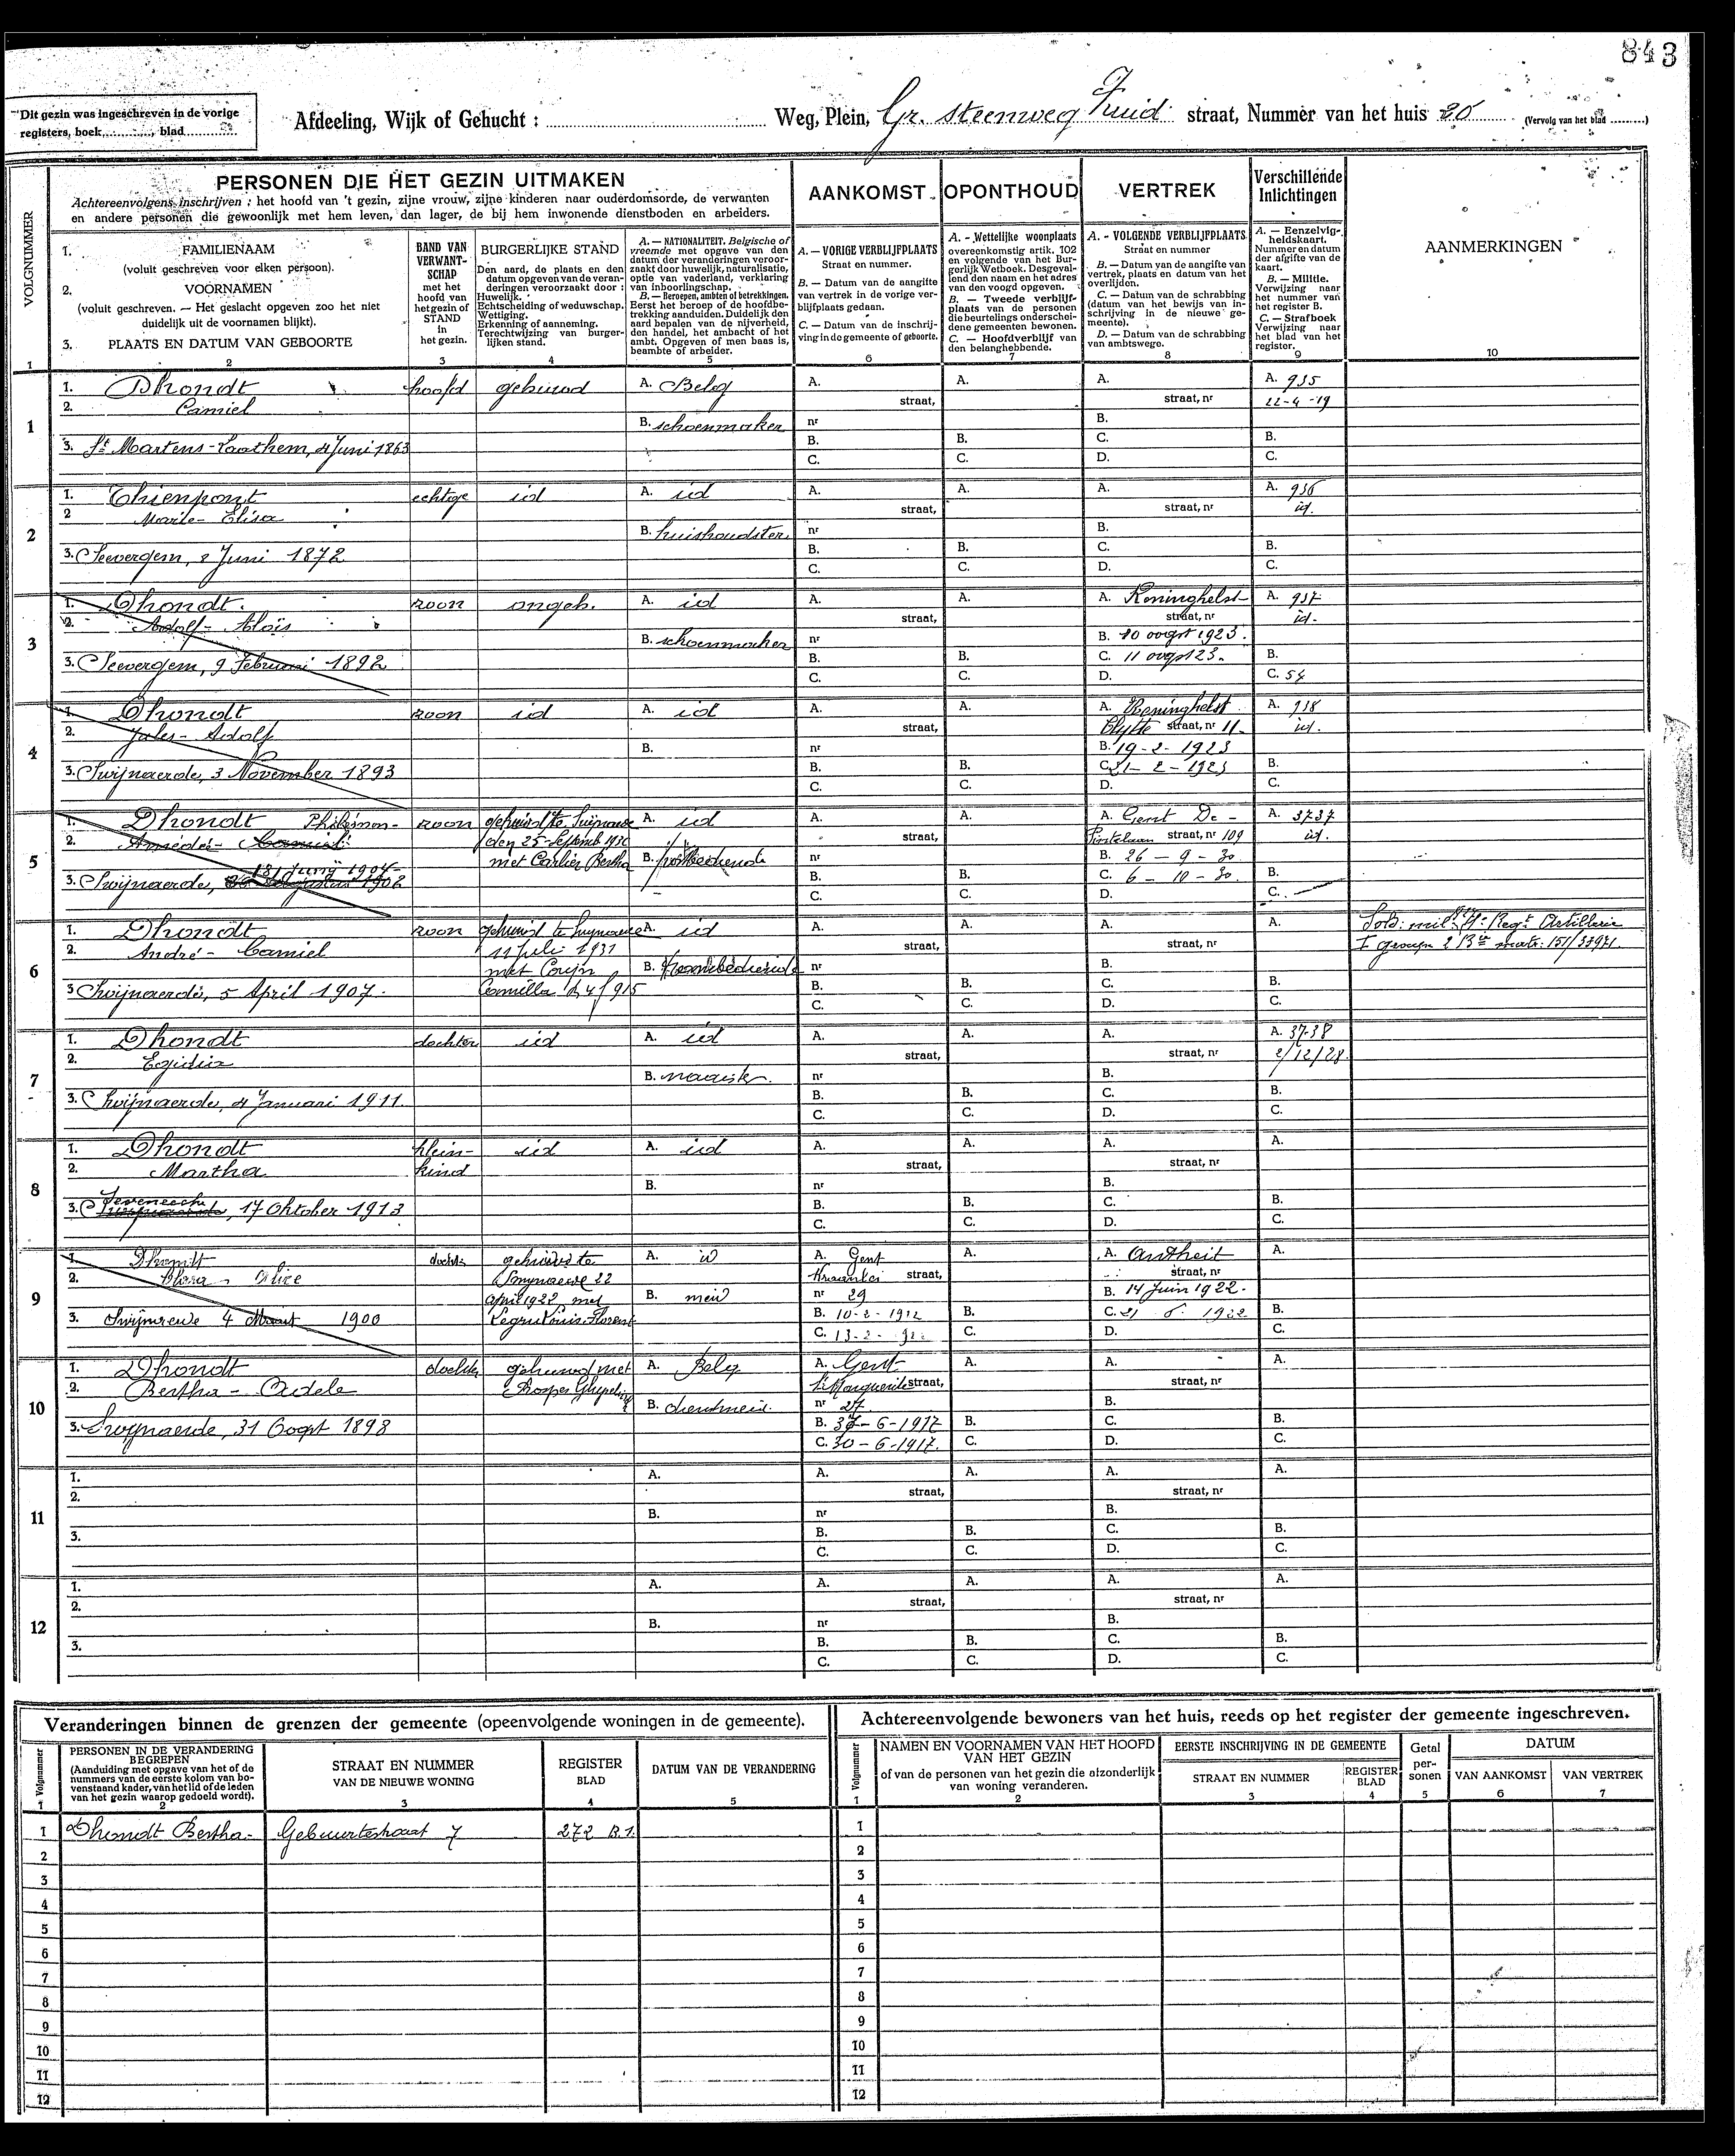 843
Dit gezin was ingeschreven in de vorige
registers, boek, blad
Afdeeling, Wijk of Gehucht :
Weg, Plein, Gr. steenweg Zuid straat, Nummer van het huis 20
(Vervolg van het blad )
VOLGNUMMER
PERSONEN DIE HET GEZIN UITMAKEN
Achtereenvolgens inschrijven : het hoofd van 't gezin, zijne vrouw, zijne kinderen naar ouderdomsorde, de verwanten
en andere personen die gewoonlijk met hem leven, dan lager, de bij hem inwonende dienstboden en arbeiders.
AANKOMST
OPONTHOUD
VERTREK
Verschillende
Inlichtingen
AANMERKINGEN
1. FAMILIENAAM
(voluit geschreven voor elken persoon).
2. VOORNAMEN
(voluit geschreven. — Het geslacht opgeven zoo het niet
duidelijk uit de voornamen blijkt).
3. PLAATS EN DATUM VAN GEBOORTE
BAND VAN
VERWANT-
SCHAP
met het
hoofd van
het gezin of
STAND
in
het gezin.
BURGERLIJKE STAND
Den aard, de plaats en den
datum opgeven van de veran-
deringen veroorzaakt door :
Huwelijk.
Echtscheiding of weduwschap.
Wettiging.
Erkenning of aanneming.
Terechtwijzing van burger-
lijken stand.
A. — NATIONALITEIT. Belgische of
vreemde met opgave van den
datum der veranderingen veroor-
zaakt door huwelijk, naturalisatie,
optie van vaderland, verklaring
van inboorlingschap.
B. — Beroepen, ambten of betrekkingen.
Eerst het beroep of de hoofdbe-
trekking aanduiden. Duidelijk den
aard bepalen van de nijverheid,
den handel, het ambacht of het
ambt. Opgeven of men baas is,
beambte of arbeider.
A. — VORIGE VERBLIJFPLAATS
Straat en nummer.
B. — Datum van de aangifte
van vertrek in de vorige ver-
blijfplaats gedaan.
C. — Datum van de inschrij-
ving in de gemeente of geboorte.
A. - Wettelijke woonplaats
overeenkomstig artik. 102
en volgende van het Bur-
gerlijk Wetboek. Desgeval-
lend den naam en het adres
van den voogd opgeven.
B. — Tweede verblijf-
plaats van de personen
die beurtelings onderschei-
dene gemeenten bewonen.
C. — Hoofdverblijf van
den belanghebbende.
A. - VOLGENDE VERBLIJFPLAATS
Straat en nummer
B. — Datum van de aangifte van
vertrek, plaats en datum van het
overlijden.
C. — Datum van de schrabbing
(datum van het bewijs van in-
schrijving in de nieuwe ge-
meente).
D. — Datum van de schrabbing
van ambtswege.
A. — Eenzelvig-
heidskaart.
Nummer en datum
der afgifte van de
kaart.
B. — Militie.
Verwijzing naar
het nummer van
het register B.
C. — Strafboek
Verwijzing naar
het blad van het
register.
1 2 3 4 5 6 7 8 9 10
1
1. Dhondt hoofd gehuwd A. Belg A. A. A. A. 935
2. Camiel straat, straat, nr 22-4-19
B. schoenmaker nr B.
3. St Martens-Laathem, 4 Juni 1863 B. B. C. B.
C. C. D. C.
2
1. Thienpont echtge id A. id A. A. A. A. 936
2 Marie-Elisa straat, straat, nr id.
B. huishoudster nr B.
3. Seevergem, 2 Juni 1872 B. B. C. B.
C. C. D. C.
3
1. Dhondt. zoon ongeh. A. id A. A. A. Reninghelst A. 937
2. Adolf-Aloïs straat, straat, nr id.
B. schoenmaker nr B. 10 oogst 1923.
3. Seevergem, 9 Februari 1892 B. B. C. 11 oogst 23. B.
C. C. D. C. 54
4
1. Dhondt zoon id A. id A. A. A. Reninghelst A. 938
2. Jules-Adolf straat, Clytte straat, nr 11. id.
B. nr B. 19-2-1923
3. Swijnaerde, 3 November 1893 B. B. C. 21-2-1923 B.
C. C. D. C.
5
1. Dhondt Philémon- zoon gehuwd te Swijnaerde A. id A. A. A. Gent De- A. 3737
2. Amédée-Camiel den 25 Septemb 1930 straat, Pintelaan straat, nr 109 id.
met Carlier Bertha B. postbediende nr B. 26-9-30
13 Juny 1904
3. Swijnaerde, 1902 B. B. C. 6-10-30. B.
C. C. D. C.
6
1. Dhondt zoon gehuwd te Swynaerde A. id A. A. A. A. Sold. mil. Regt Artillerie
2. André-Camiel 11 Juli 1931 straat, straat, nr I groep 2 Bie matr. 151/33971.
met Coryn B. nr B.
3 Swijnaerde, 5 April 1907. Camilla B. B. C. B.
C. C. D. C.
7
1. Dhondt dochter id A. id A. A. A. A. 3738
2. Egidia straat, straat, nr 2/12/28.
B. naaister nr B.
3. Swijnaerde, 4 Januari 1911 B. B. C. B.
C. C. D. C.
8
1. Dhondt klein- id A. id A. A. A. A.
2. Martha kind straat, straat, nr
B. nr B.
3. 17 Oktober 1913 B. B. C. B.
C. C. D. C.
9
1. Dhondt dochter gehuwd te A. id A. Gent A. A. Antheit A.
2. Clara-Alice Swynaerde 22 straat, straat, nr
april 1922 met B. meid nr 29 B. 14 Juin 1922.
3. Swijnaerde 4 Maart 1900 Legru Louis Florent B. 10-2-1912 B. C. 21 6. 1922 B.
C. 13-2-1922 C. D. C.
10
1. Dhondt dochter gehuwd met A. Belg A. Gent A. A. A.
2. Bertha-Adele straat, straat, nr
B. dienstmeid. nr 27 B.
3. Swijnaerde, 31 Oogst 1898 B. -6-1917 B. C. B.
C. 30-6-1917. C. D. C.
11
1. A. A. A. A. A.
2. straat, straat, nr
B. nr B.
3. B. B. C. B.
C. C. D. C.
12
1. A. A. A. A. A.
2. straat, straat, nr
B. nr B.
3. B. B. C. B.
C. C. D. C.
Veranderingen binnen de grenzen der gemeente (opeenvolgende woningen in de gemeente).
Volgnummer
PERSONEN IN DE VERANDERING
BEGREPEN
(Aanduiding met opgave van het of de
nummers van de eerste kolom van bo-
venstaand kader, van het lid of de leden
van het gezin waarop gedoeld wordt).
STRAAT EN NUMMER
VAN DE NIEUWE WONING
REGISTER
BLAD
DATUM VAN DE VERANDERING
1 2 3 4 5
1 Dhondt Bertha- Gebuurtestraat 7 272 B.1.
2
3
4
5
6
7
8
9
10
11
12
Achtereenvolgende bewoners van het huis, reeds op het register der gemeente ingeschreven.
Volgnummer
NAMEN EN VOORNAMEN VAN HET HOOFD
VAN HET GEZIN
of van de personen van het gezin die afzonderlijk
van woning veranderen.
EERSTE INSCHRIJVING IN DE GEMEENTE
STRAAT EN NUMMER
REGISTER
BLAD
Getal
per-
sonen
DATUM
VAN AANKOMST
VAN VERTREK
1 2 3 4 5 6 7
1
2
3
4
5
6
7
8
9
10
11
12